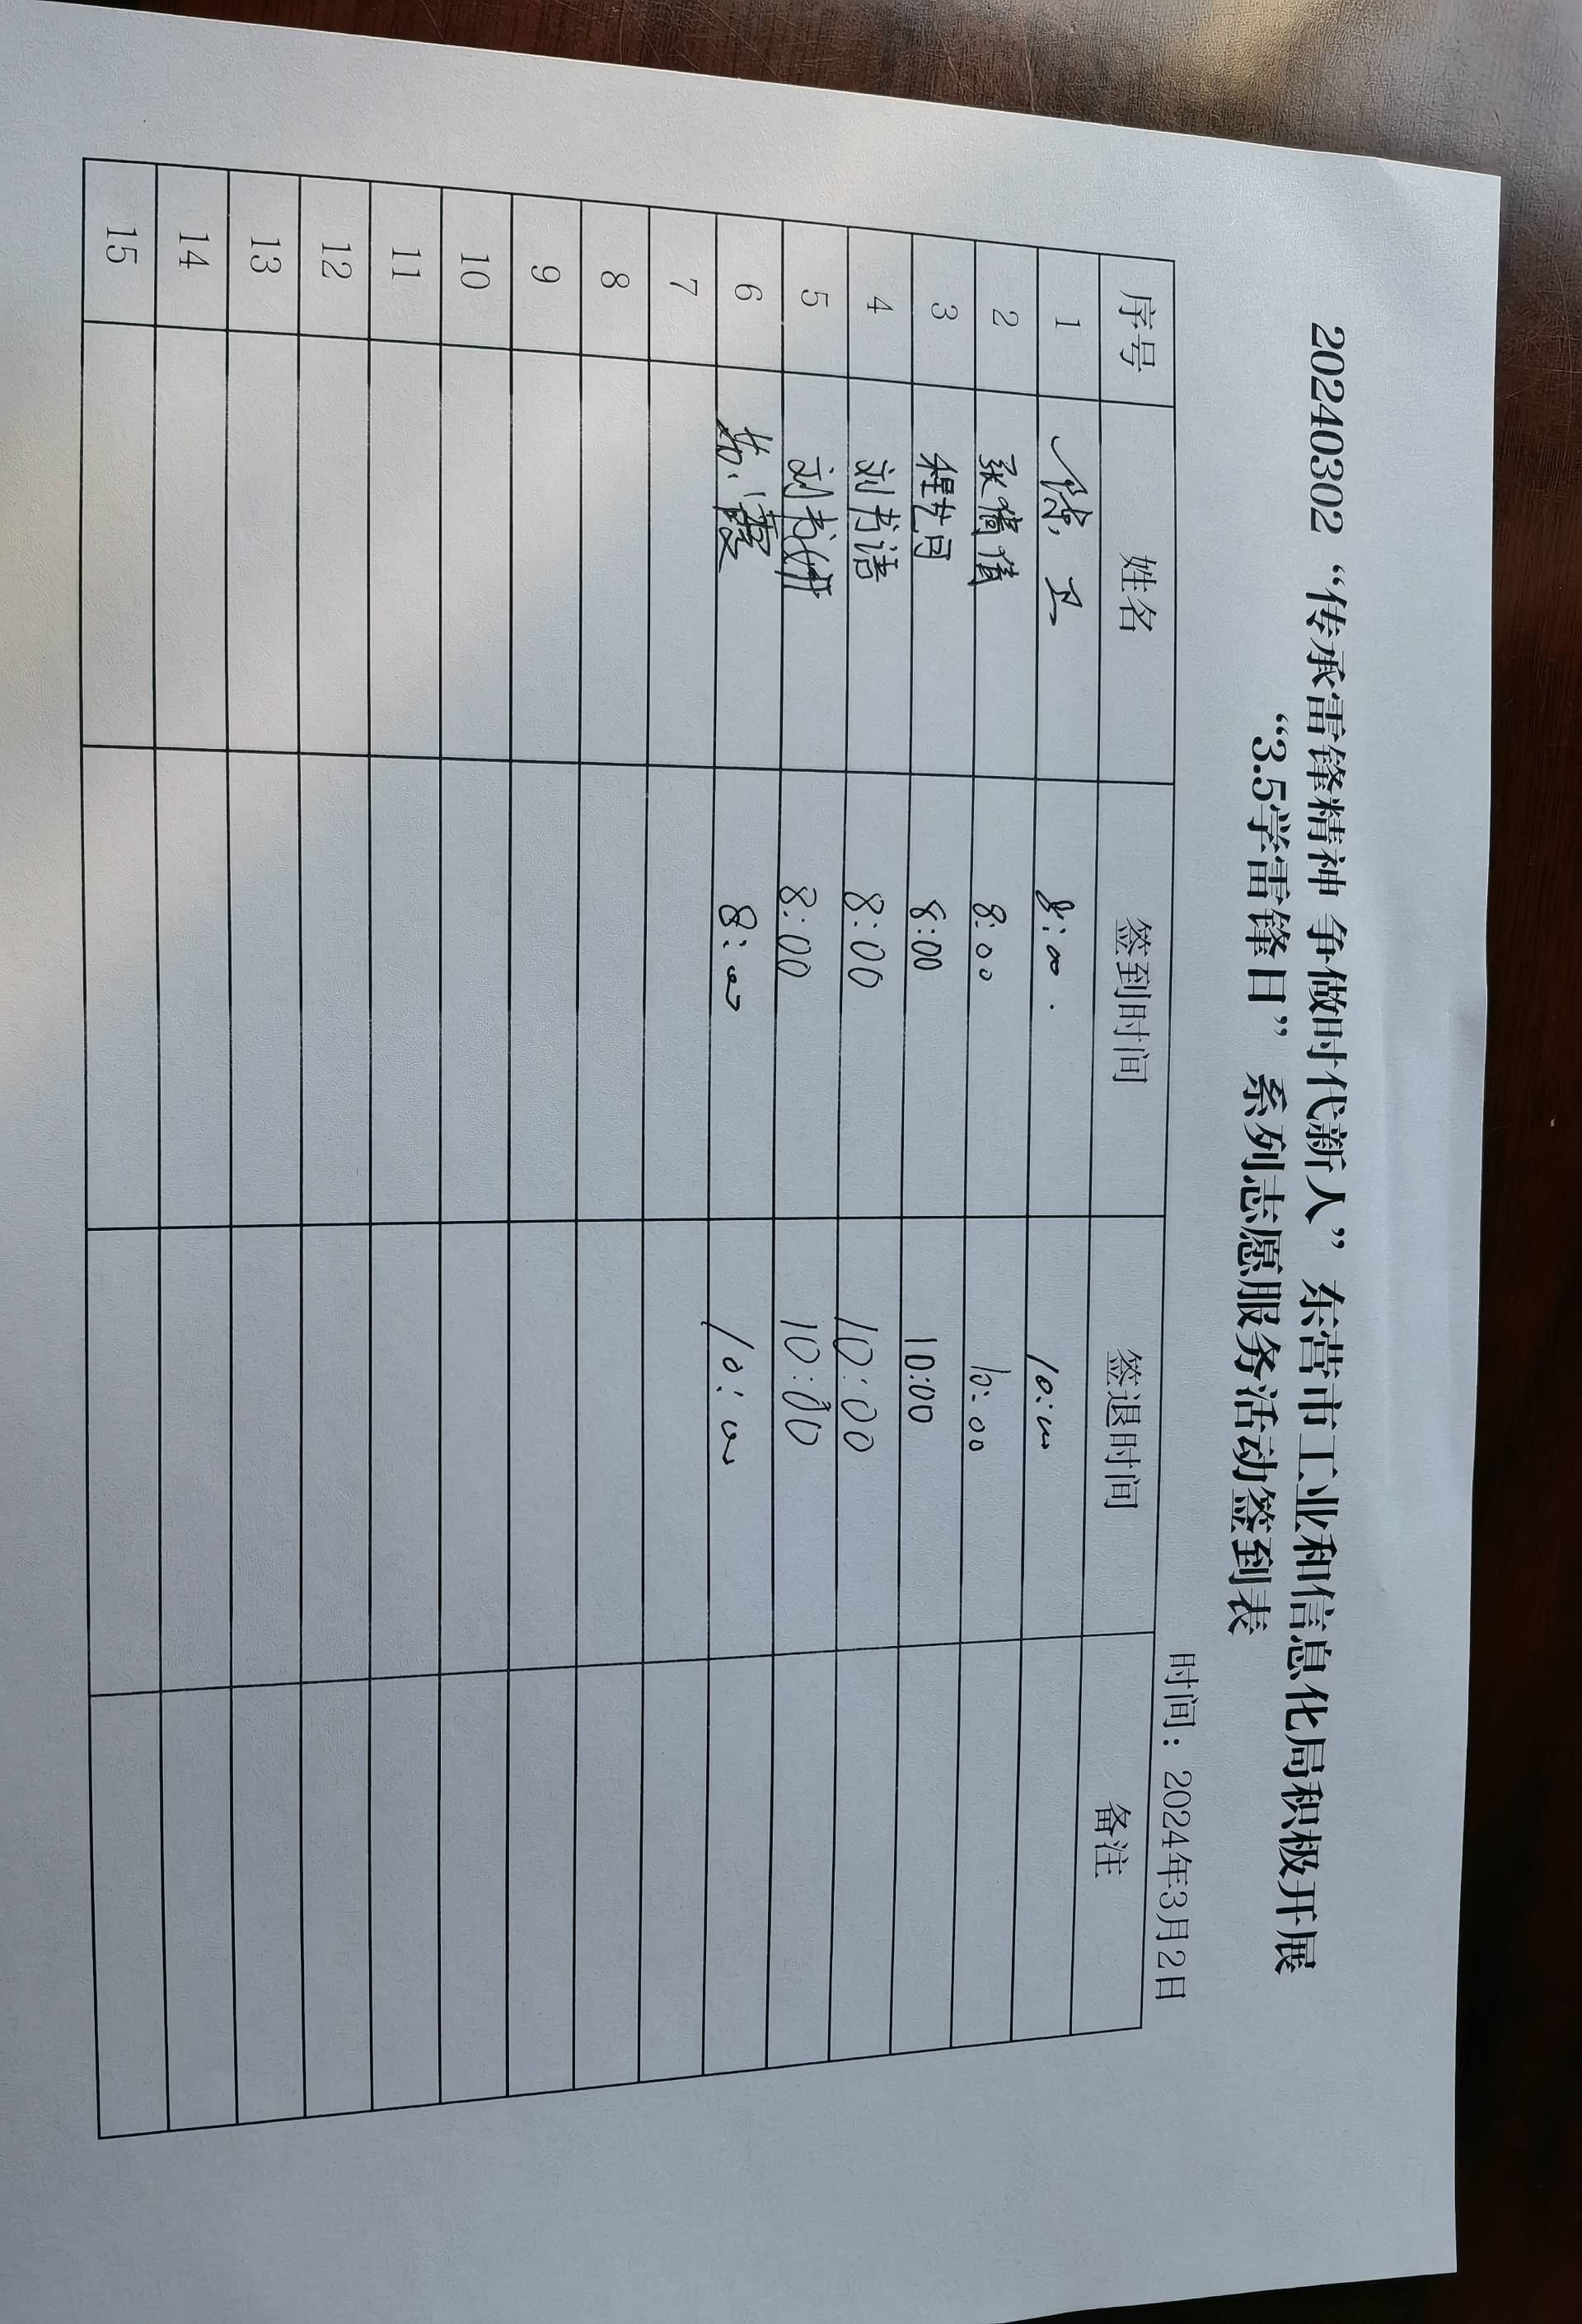 20240302 “传承雷锋精神 争做时代新人” 东营市工业和信息化局积极开展
“3.5学雷锋日” 系列志愿服务活动签到表
时间：2024年3月2日
序号 姓名 签到时间 签退时间 备注
1 徐卫 8:00 10:00
2 张倩倩 8:00 10:00
3 程艺司 8:00 10:00
4 刘书语 8:00 10:00
5 刘书妍 8:00 10:00
6 苏霞 8:00 10:00
7
8
9
10
11
12
13
14
15